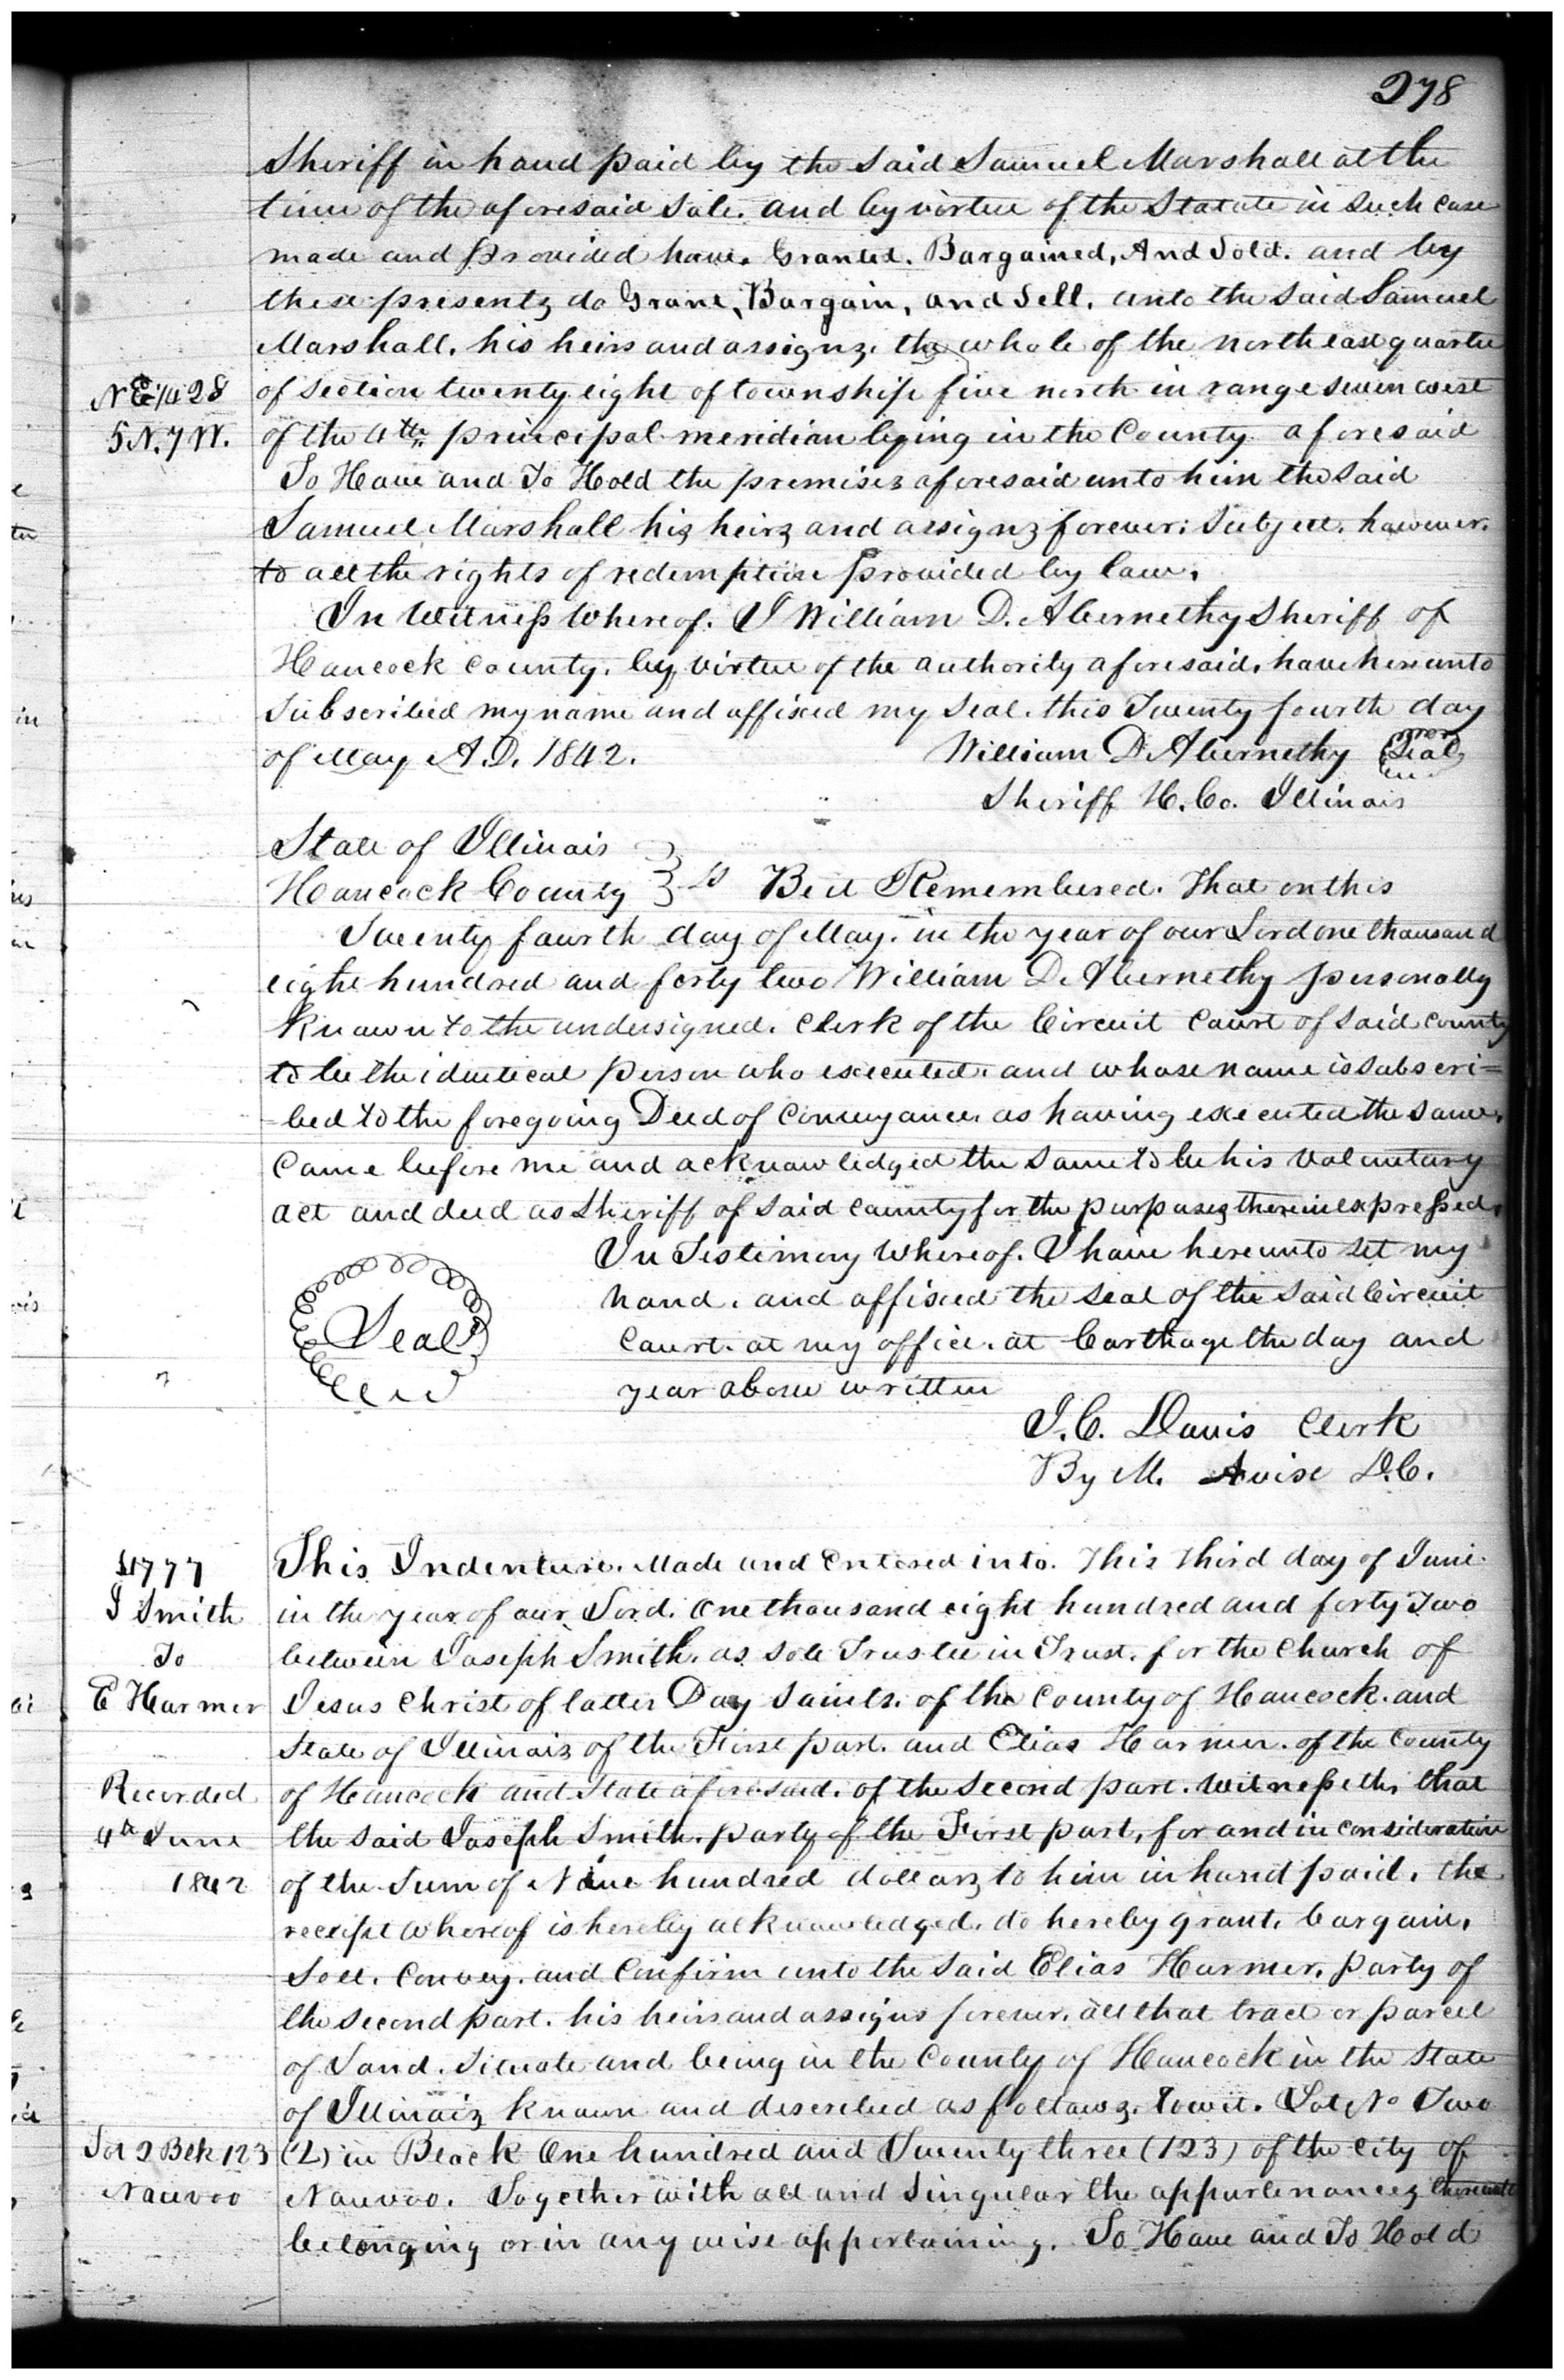 278
Sheriff in hand paid by the said Samuel Marshall at the
time of the aforesaid Sale. and by virtue of the Statute in such case
made and provided have. Granted. Bargained, And Sold. and by
these presents do Grant, Bargain, and Sell. unto the said Samuel
Marshall. his heirs and assigns. the whole of the north east quarter
N E 1/4 28
of section twenty eight of township five north in range seven west
5 N. 7 W.
of the 4th principal meridian lying in the County aforesaid
To Have and To Hold the premises aforesaid unto him the said
Samuel Marshall his heirs and assigns forever: Subject. however.
to all the rights of redemption provided by law.
In Witness Whereof. I William D. Abernethy Sheriff of
Hancock County. by virtue of the authority aforesaid. have hereunto
Subscribed my name and affixed my Seal. this Twenty fourth day
of May A.D. 1842. William D. Abernethy Seal
Sheriff H. Co. Illinois
State of Illinois
Hancock County } ss Be it Remembered. That on this
Twenty fourth day of May. in the year of our Lord one thousand
eight hundred and forty two William D. Abernethy personally
known to the undersigned. Clerk of the Circuit Court of said County
to be the identical person who executed. and whose name is subscri=
=bed to the foregoing Deed of Conveyance. as having executed the same.
Came before me and acknowledged the same to be his voluntary
act and deed as Sheriff of said County for the purposes therein expressed.
In Testimony Whereof. I have hereunto set my
hand. and affixed the seal of the said Circuit
Seal
Court. at my office. at Carthage the day and
year above written
J. C. Davis Clerk
By M. Avise D.C.
4777
This Indenture. Made and Entered into. This third day of June
J Smith
in the year of our Lord. One thousand eight hundred and forty Two
To
between Joseph Smith. as sole Trustee in Trust. for the Church of
E Harmer
Jesus Christ of latter Day Saints. of the County of Hancock. and
State of Illinois of the First part. and Elias Harmer. of the County
Recorded
of Hancock and State aforesaid. of the Second part. Witnesseth. that
4th June
the said Joseph Smith. party of the First part, for and in consideration
1842
of the Sum of Nine hundred dollars to him in hand paid. the
receipt whereof is hereby acknowledged. do hereby grant. bargain.
Sell. Convey. and Confirm unto the said Elias Harmer. party of
the second part. his heirs and assigns forever. all that tract or parcel
of Land. Situate and being in the County of Hancock in the State
of Illinois known and described as follows. towit. Lot No Two
Lot 2 Blk 123
(2) in Block One hundred and Twenty three (123) of the City of
Nauvoo
Nauvoo. Together with all and Singular the appurtenances thereunto
belonging or in any wise appertaining. To Have and To Hold